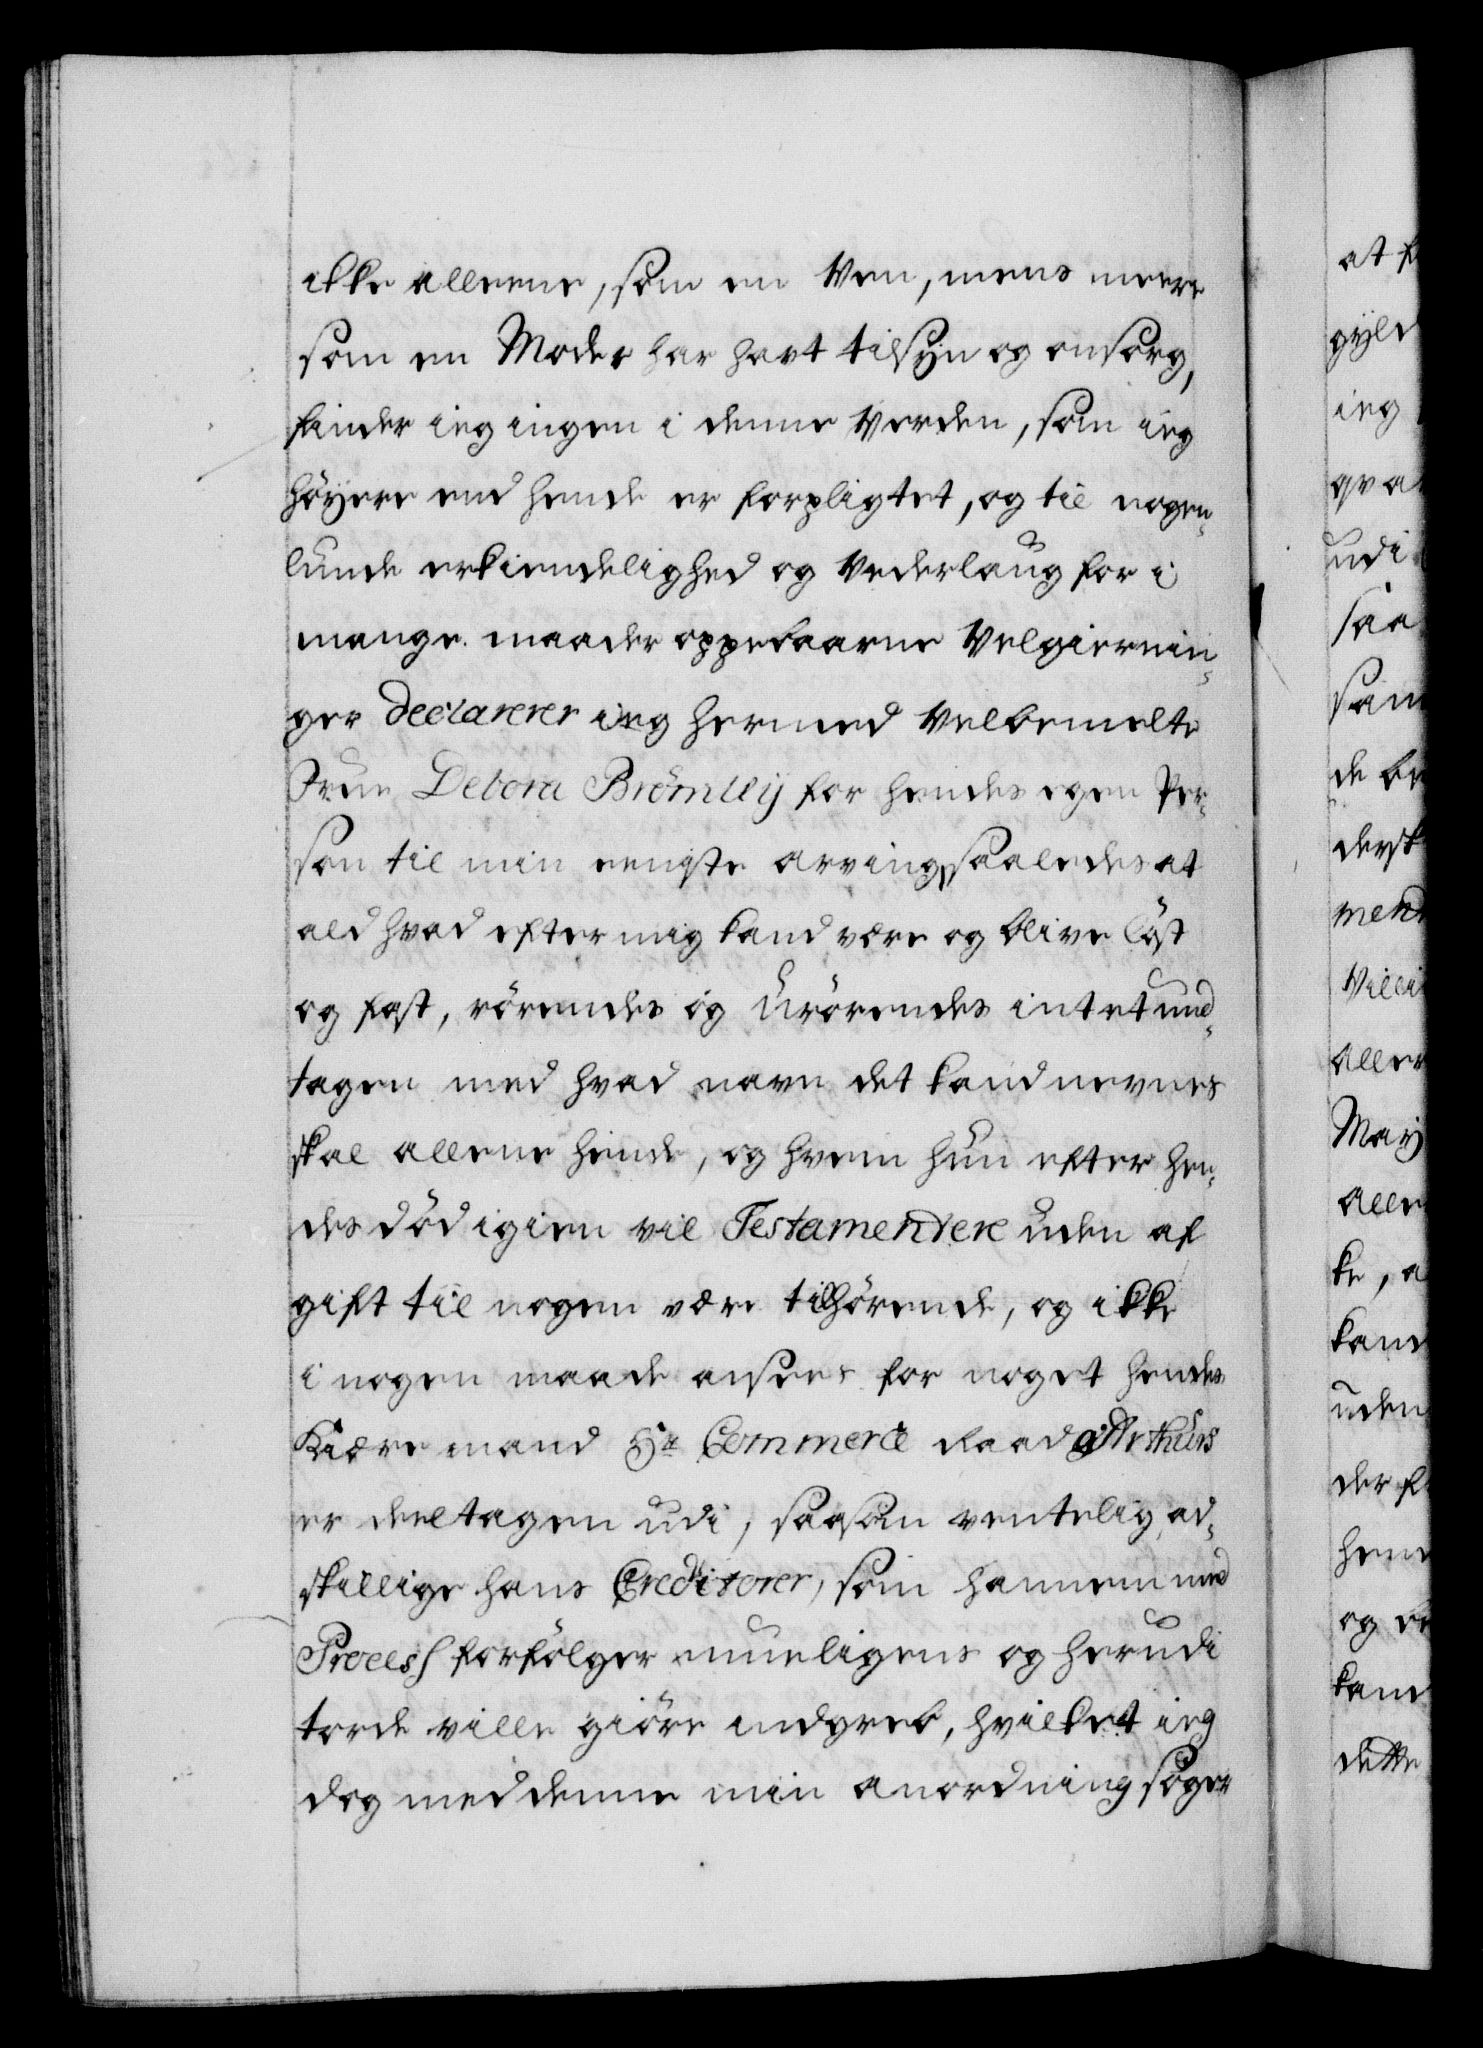 ikke alleene, som en Ven, mens meere
som en Moder har havt tilsÿn og omsorg,
finder ieg ingen i denne Verden, som ieg
höÿere end hende er forpligtet, og til nogen-
lunde erkiendelighed og Vederlaug for i
mange maader oppebaarne Velgiernin-
ger declarerer ieg hermed Velbemelte
Frue Debora Brömlly for hendes egen Per-
son til min eeniste arving, saaledes at
ald hvad efter mig kand være og blive löst
og fast, rörendes og urörendes intet und-
tagen med hvad navn det kand nevnes
skal allene hende, og hvem hun efter hen-
des död igien vil Testamentere uden af
gift til nogen være tilhörende, og ikke
i nogen maade ansees for noget hendes
Kiære mand Hr Commerce Raad Arthurs
er deeltagen udi, saasom ventelig ad-
skillige hans Creditorer, som hannem med
Process forfölger mueligens og herudi
torde ville giöre indgreb, hvilket ieg
dog med denne min anordning söger
at f
gÿld
ieg
qva
udi
saa
sam
de be
dersk
ment
Villi
aller
Maÿ
alle
ke, a
kand
uden
der f
hen
og
kand
dette